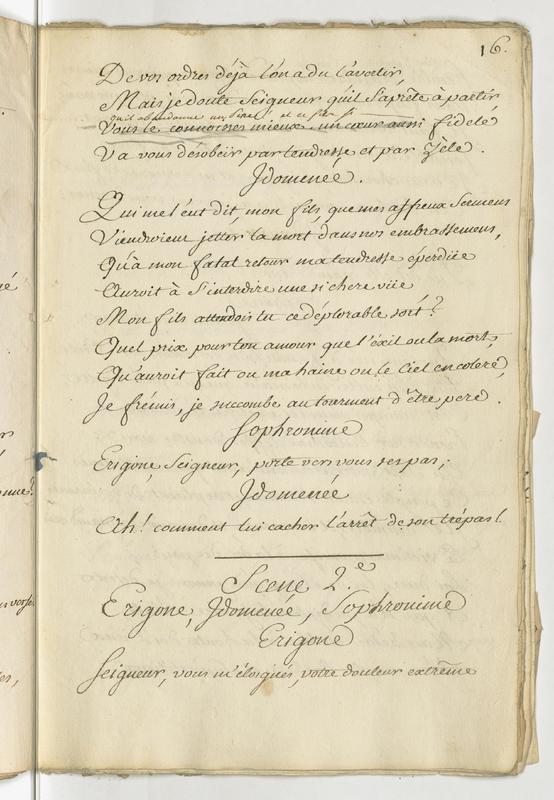 16.
De vos ordres déjà l'on a du l'avertir,
Mais je doute Seigneur qu'il s'aprête à partir
qu'il abandonne un Pere et ce fils si
Vous le connoissés mieux, un cœur aussi fidelé
Va vous désobeïr par tendresse et par zéle.
Jdomeneé.
Qui me l'eut dit mon fils, que mes affreux Sermens
Viendroient jetter la mort dans nos embrassemens,
Qu'à mon fatal retour ma tendresse éperdüe
Auroit à s'interdire une si chere vüe
Mon fils attendois tu ce déplorable sort?
Quel prix pour ton amour que l'éxil ou la mort,
Qu'auroit fait ou ma haine ou le Ciel en coleré,
Je frémis, je succombe au tourment d'être peré.
Sophronime
Erigone, Seigneur, porte vers vous ses pas;
Jdomeneé
Ah! comment lui cacher l'arrêt de son trépas!
Scene 2.e
Erigone, Jdomeneé, Sophronime
Erigone
Seigneur, vous m'éloignés, votre douleur extrême